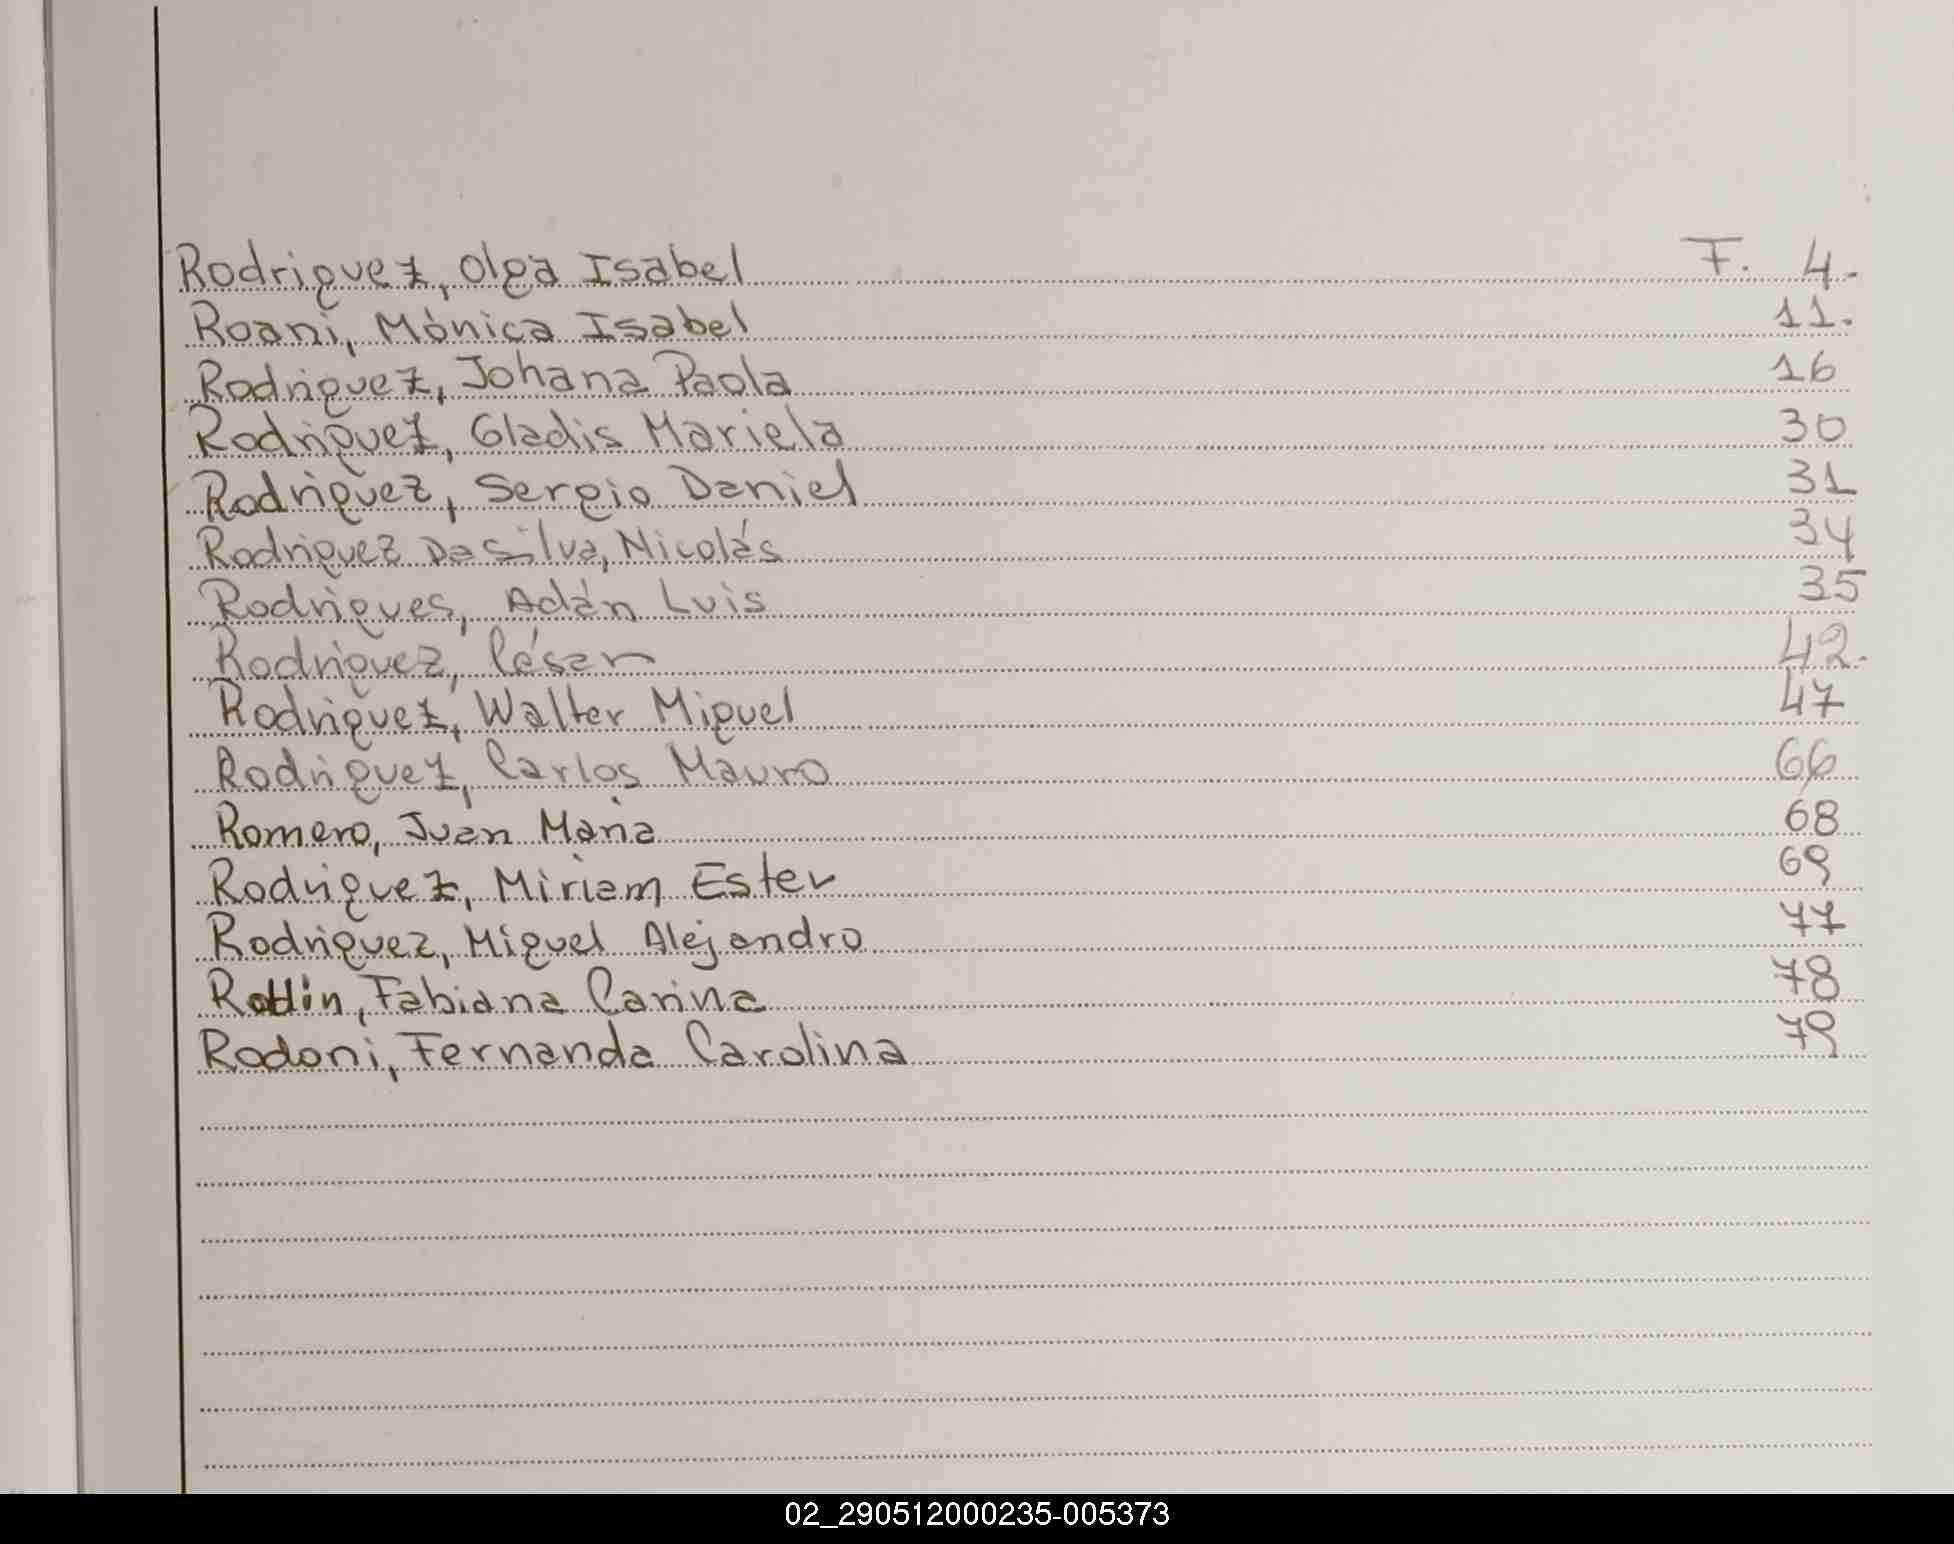 Rodriguez, Olga Isabel F. 4.
Roani, Mónica Isabel 11.
Rodriguez, Johana Paola 16
Rodriguez, Gladis Mariela 30
Rodriguez, Sergio Daniel 31
Rodriguez Da Silva, Nicolás 34
Rodrigues, Adán Luis 35
Rodriguez, César 42.
Rodriguez, Walter Miguel 47
Rodriguez, Carlos Mauro 66
Romero, Juan María 68
Rodriguez, Miriam Ester 69
Rodriguez, Miguel Alejandro 77
Fabiana Carina 78
Rodoni, Fernanda Carolina 79
02_290512000235-005373